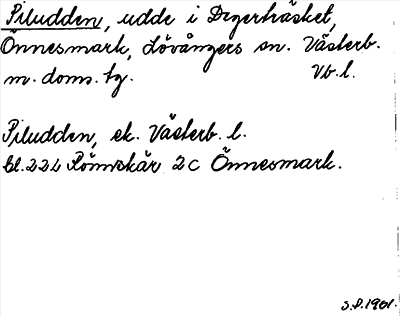 Piludden, udde i Degerträsket,
Önnesmark, Lövångers sn. Västerb.
m. doms. tg. Vb. l.
Piludden, ek. Västerb. l.
bl. 224 Rönnskär 2C Önnesmark.
S.P. 1961.